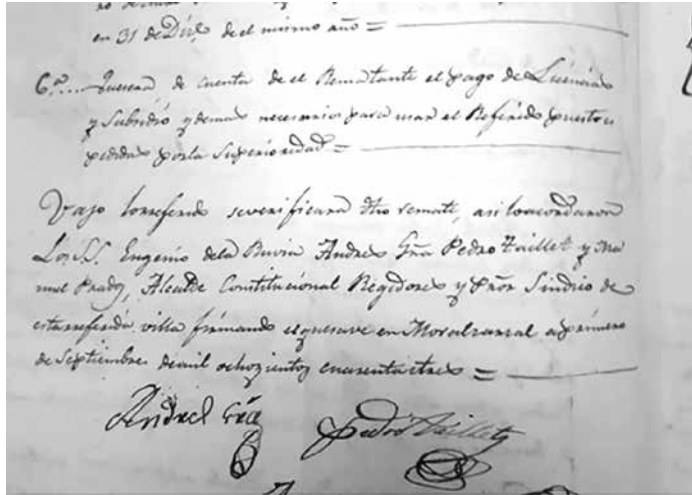 en 31 de Dice. de el mismo año =
6.ª... Quesera de cuenta de el Rematante el pago de Licencias
y Subsidio y demas necesarios para usar el Referido puesto u
pedidas por la Superioridad =
Vajo lo referido severificara dho remate, asi lo acordaron
Los S.S. Eugenio dela Andres Gra Pedro Taillet y Ma
nuel Prados, Alcalde Constitucional Regidores y Pror Sindico de
esta referida villa firmando el que save en Moralzarzal a primero
de Septiembre de mil ochozientos cuarenta etres =
Andres Gra
Pedro Taillet